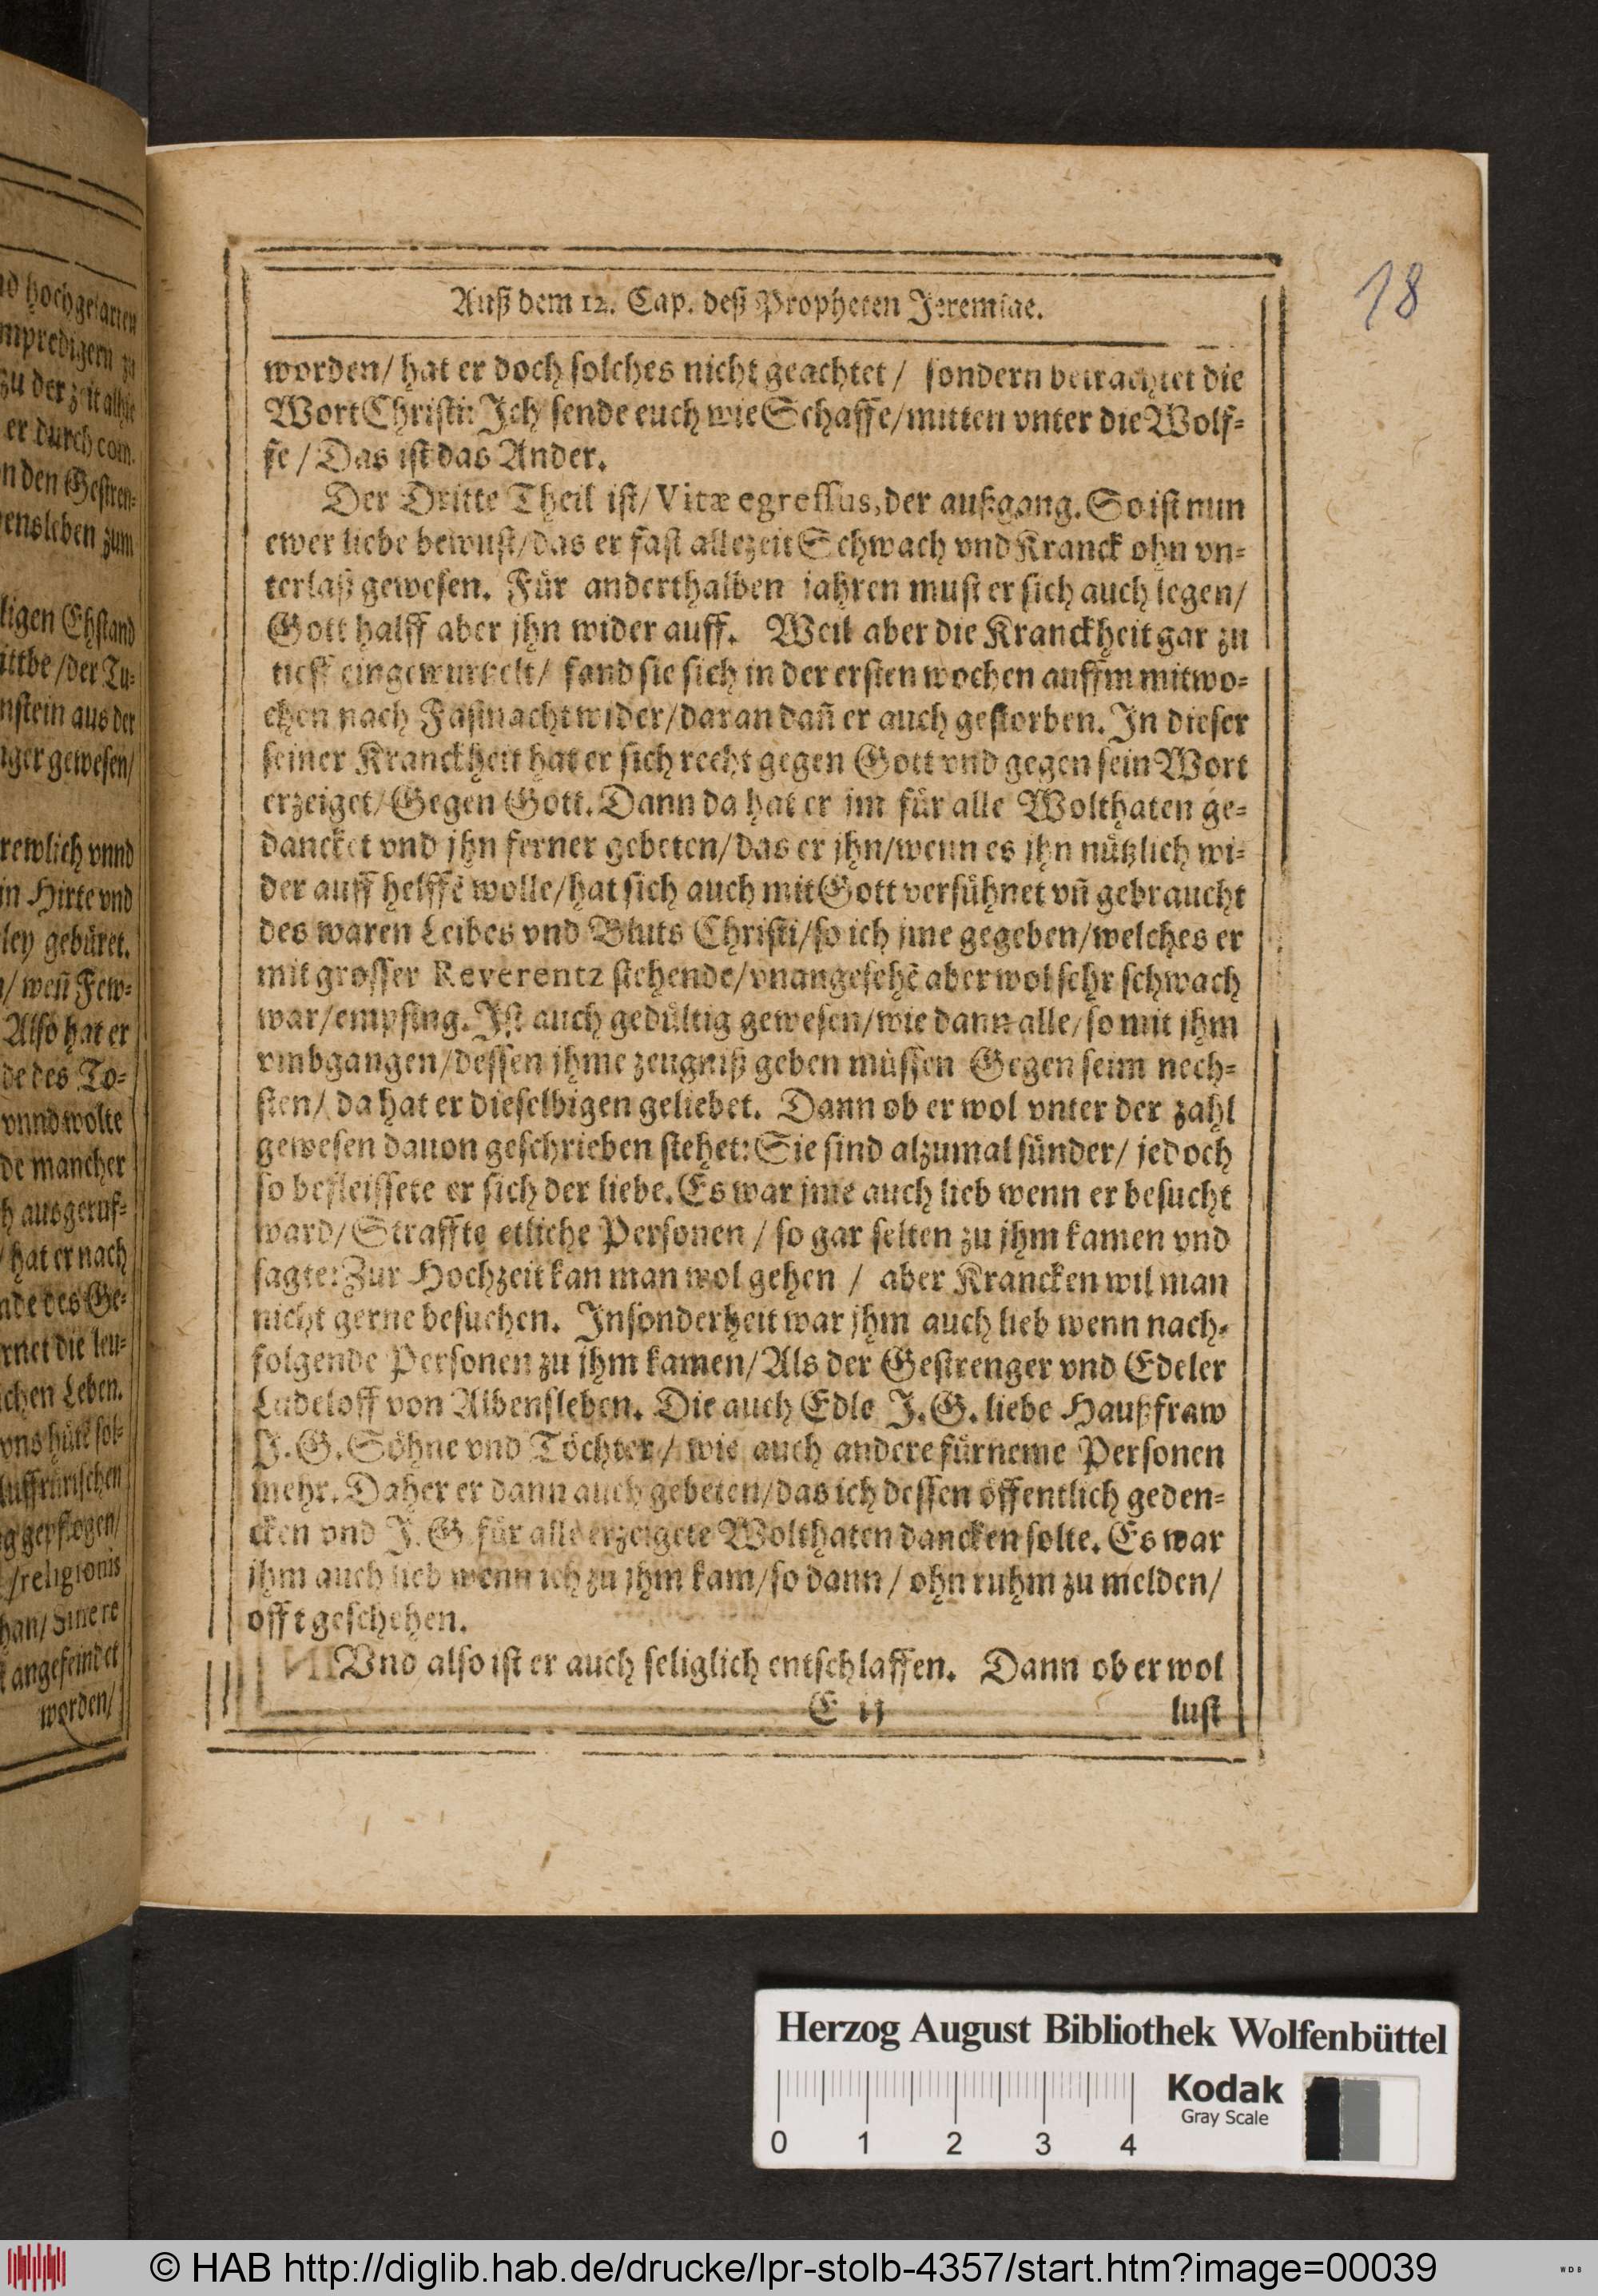 nd hochgelarten
mpredigern zu
zu der zeit alhie
er durch com-
n den Gestren-
ensleben zum
ligen Ehstand
ittbe/der Tu-
nstein aus der
iger gewesen/
rewlich vnnd
in Hirte vnd
ley gebüret.
/ weñ Few-
Also hat er
de des To-
vnnd wolte
de mancher
h ausgeruf-
/ hat er nach
nde des Ge-
rnet die leu-
ichen Leben.
vns hüte sol-
auffrürischen
g gepflogen/
/religionis
han/
angefeindet
worden/
18
Auß dem 12. Cap. deß Propheten Jeremiae.
worden/ hat er doch solches nicht geachtet/ sondern betrachtet die
Wort Christi: Ich sende euch wie Schaffe/mitten vnter die Wolf-
fe/ Das ist das Ander.
Der Dritte Theil ist/ Vitæ egressus, der außgang. So ist nun
ewer liebe bewust/das er fast allezeit Schwach vnd Kranck ohn vn-
terlaß gewesen. Für anderthalben jahren must er sich auch legen/
Gott halff aber jhn wider auff. Weil aber die Kranckheit gar zu
tieff eingewurtzelt/ fand sie sich in der ersten wochen auffm mitwo-
chen nach Faßnacht wider/daran dañ er auch gestorben. In dieser
seiner Kranckheit hat er sich recht gegen Gott vnd gegen sein Wort
erzeiget/Gegen Gott. Dann da hat er jm für alle Wolthaten ge-
dancket vnd jhn ferner gebeten/das er jhn/wenn es jhn nützlich wi-
der auff helffē wolle/hat sich auch mit Gott versühnet vñ gebraucht
des waren Leibes vnd Bluts Christi/so ich jme gegeben/welches er
mit grosser Reverentz stehende/vnangesehē aber wol sehr schwach
war/empfing. Ist auch gedültig gewesen/wie dann alle/so mit jhm
vmbgangen/dessen jhme zeugniß geben müssen Gegen seim nech-
sten/ da hat er dieselbigen geliebet. Dann ob er wol vnter der zahl
gewesen dauon geschrieben stehet: Sie sind alzumal sünder/ jedoch
so befleissete er sich der liebe. Es war jme auch lieb wenn er besucht
ward/ Straffte etliche Personen/ so gar selten zu jhm kamen vnd
sagte: Zur Hochzeit kan man wol gehen/ aber Krancken wil man
nicht gerne besuchen. Insonderheit war jhm auch lieb wenn nach-
folgende Personen zu jhm kamen/Als der Gestrenger vnd Edeler
Ludeloff von Albensleben. Die auch Edle J. G. liebe Haußfraw
J. G. Söhne vnd Töchter/ wie auch andere fürneme Personen
mehr. Daher er dann auch gebeten/das ich dessen öffentlich geden-
cken vnd J. G. für alle erzeigete Wolthaten dancken solte. Es war
jhm auch lieb wenn ich zu jhm kam/so dann/ ohn ruhm zu melden/
offt geschehen.
Vnd also ist er auch seliglich entschlaffen. Dann ob er wol
E ij
lust
Herzog August Bibliothek Wolfenbüttel
Kodak
Gray Scale
0 1 2 3 4
© HAB http://diglib.hab.de/drucke/lpr-stolb-4357/start.htm?image=00039
WDB